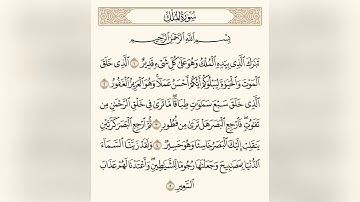 سُورَةُ المُلْكِ
بِسْمِ ٱللَّهِ ٱلرَّحْمَٰنِ ٱلرَّحِيمِ
تَبَٰرَكَ ٱلَّذِي بِيَدِهِ ٱلْمُلْكُ وَهُوَ عَلَىٰ كُلِّ شَيْءٍ قَدِيرٌ ١ ٱلَّذِي خَلَقَ
ٱلْمَوْتَ وَٱلْحَيَوٰةَ لِيَبْلُوَكُمْ أَيُّكُمْ أَحْسَنُ عَمَلًا وَهُوَ ٱلْعَزِيزُ ٱلْغَفُورُ ٢
ٱلَّذِي خَلَقَ سَبْعَ سَمَٰوَٰتٍ طِبَاقًا مَّا تَرَىٰ فِي خَلْقِ ٱلرَّحْمَٰنِ مِن
تَفَٰوُتٍ فَٱرْجِعِ ٱلْبَصَرَ هَلْ تَرَىٰ مِن فُطُورٍ ٣ ثُمَّ ٱرْجِعِ ٱلْبَصَرَ كَرَّتَيْنِ
يَنقَلِبْ إِلَيْكَ ٱلْبَصَرُ خَاسِئًا وَهُوَ حَسِيرٌ ٤ وَلَقَدْ زَيَّنَّا ٱلسَّمَآءَ
ٱلدُّنْيَا بِمَصَٰبِيحَ وَجَعَلْنَٰهَا رُجُومًا لِّلشَّيَٰطِينِ وَأَعْتَدْنَا لَهُمْ عَذَابَ
ٱلسَّعِيرِ ٥